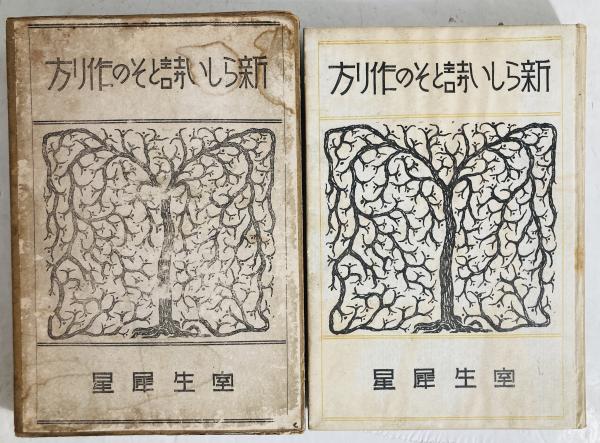 新らしい詩とその作り方
室生犀星
新らしい詩とその作り方
室生犀星